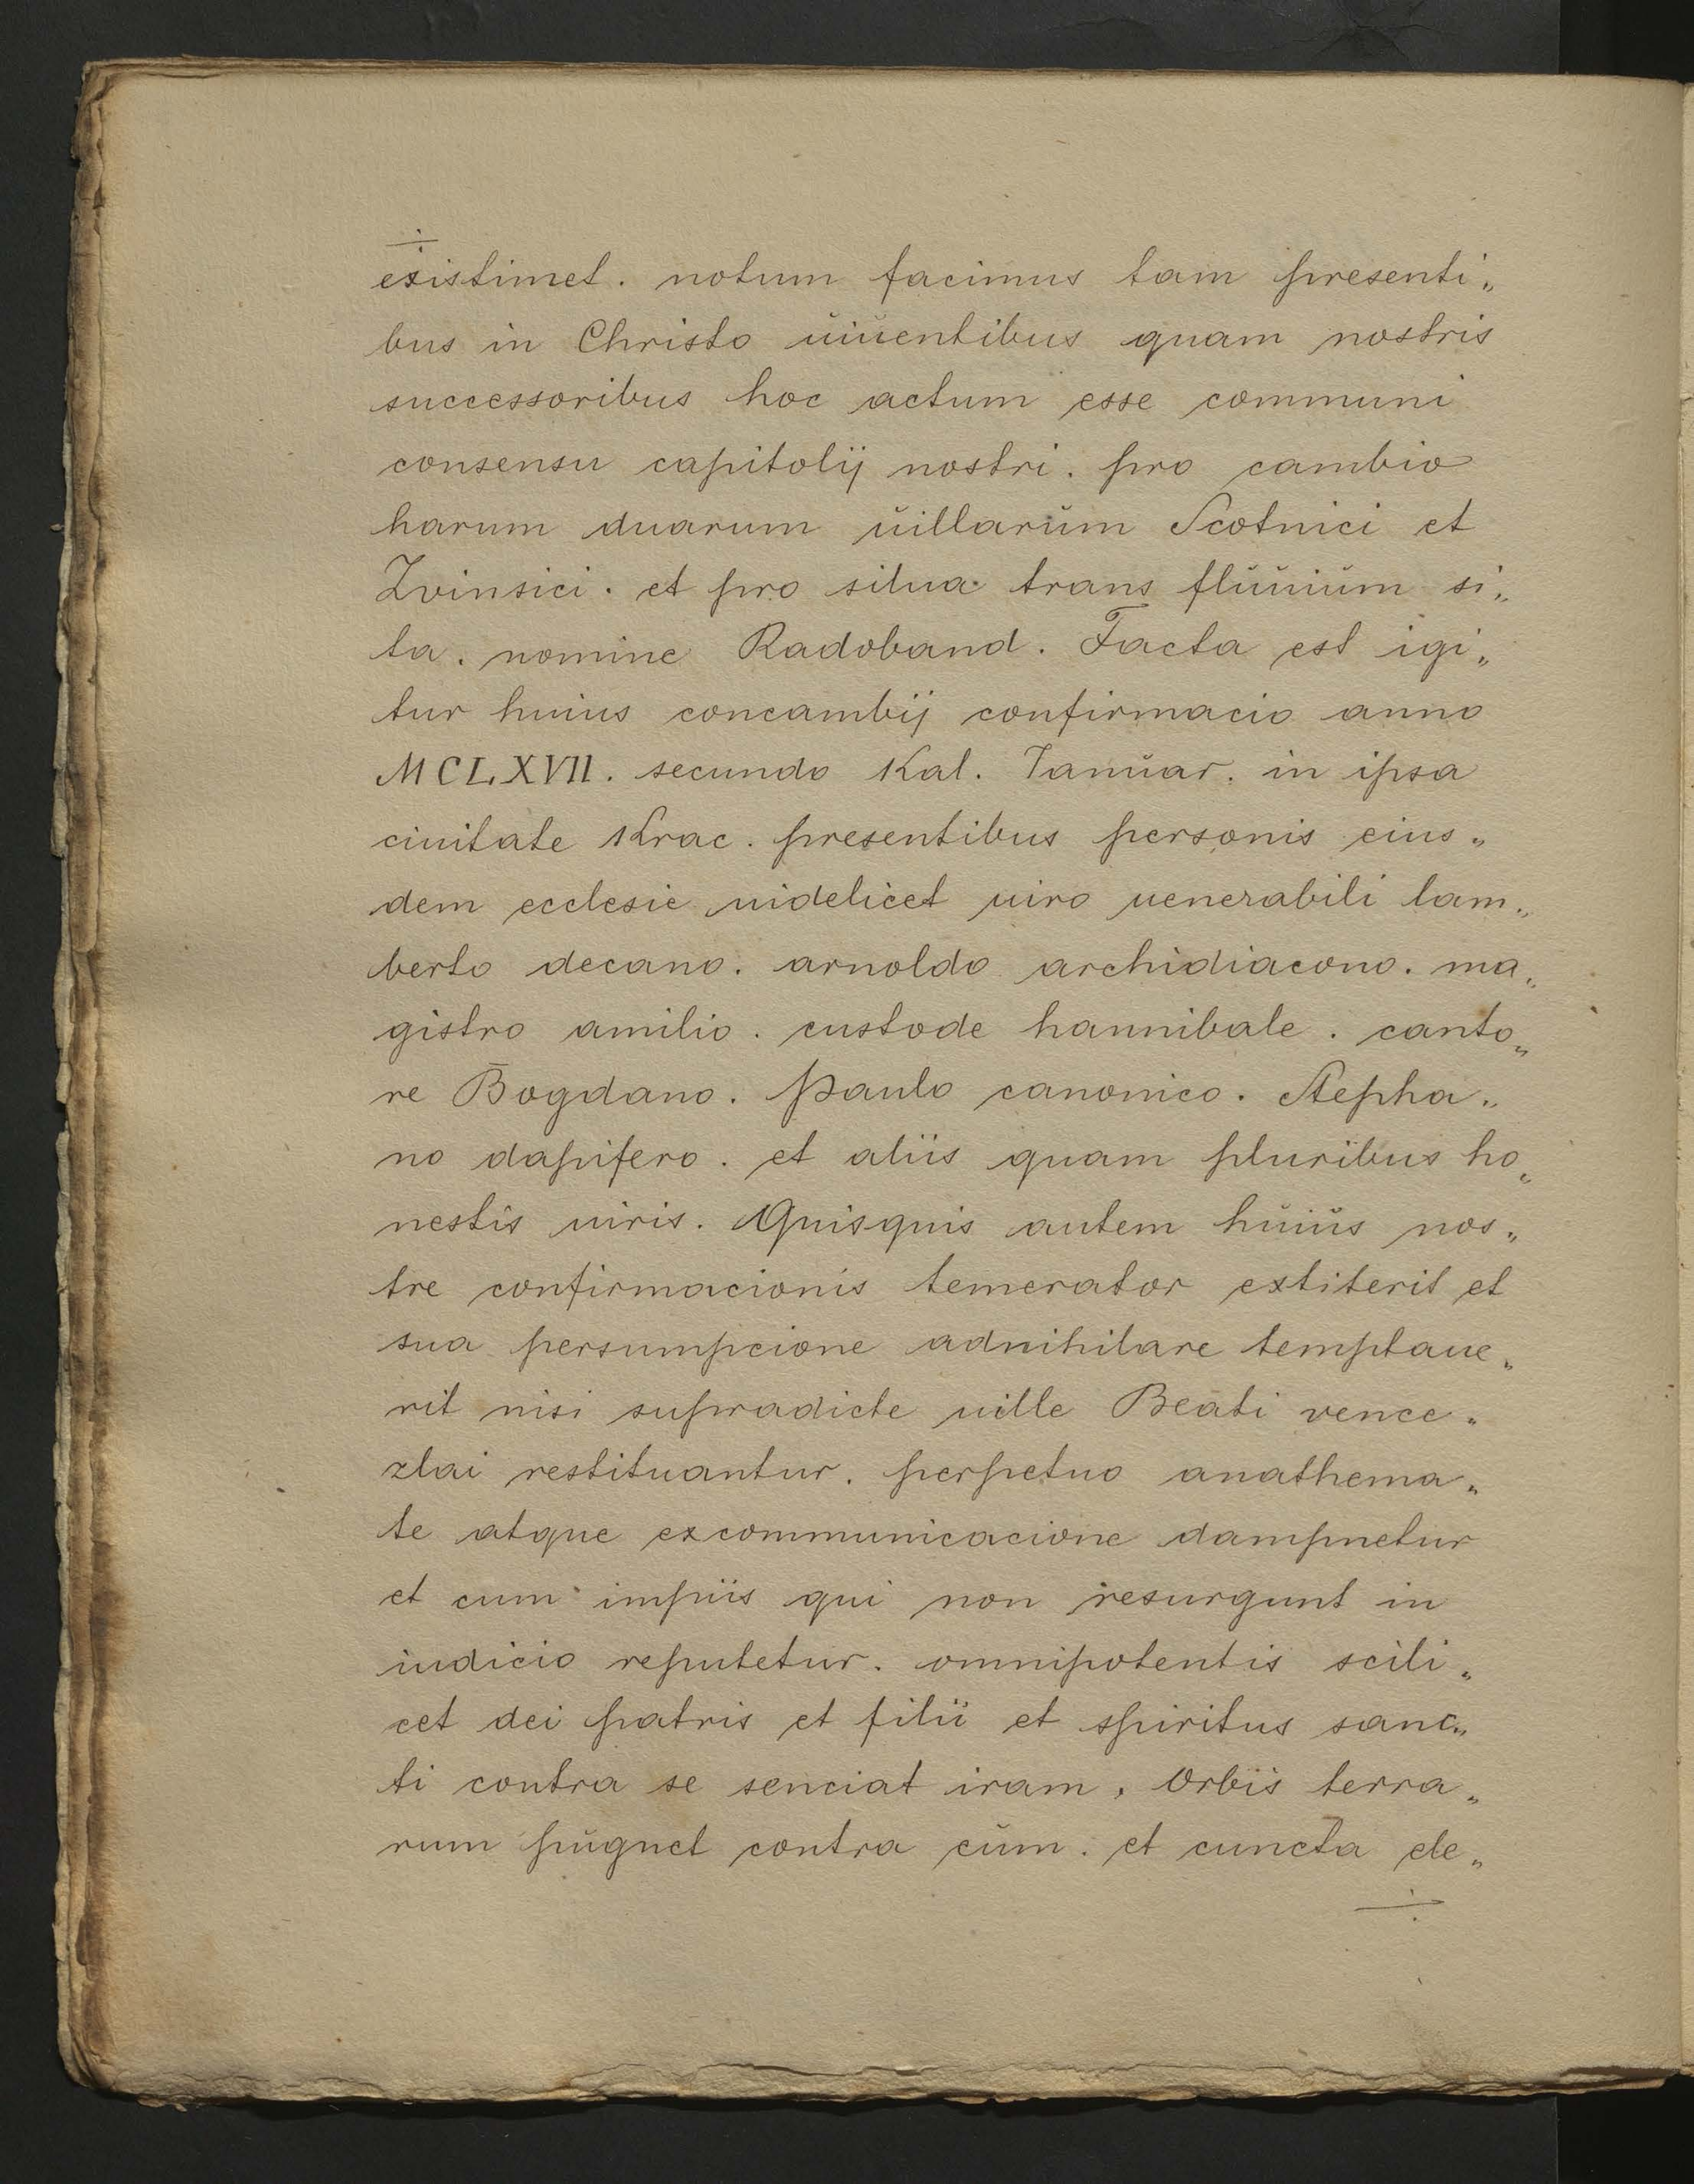 ÷
existimet. notum facimus tam presenti„
bus in Christo ŭiŭentibus quam nostris
successoribus hoc actum esse communi
consensu capitolij nostri. pro cambio
harum duarum ŭillarŭm Scotnici et
Zvinsici. et pro silua trans flŭŭiŭm si„
ta. nomine Radoband. Facta est igi„
tur huius concambij confirmacio anno
MCLXVII. secundo Kal. Ianŭar. in ipsa
ciuitate Krac. presentibus personis eius„
dem ecclesie uidelicet uiro uenerabili lam„
berto decano. arnoldo archidiacono. ma„
gistro amilio. custode hannibale. canto„
re Bogdano. Paulo canonico. Stepha„
no dapifero. et aliis quam pluribus ho„
nestis uiris. Quisquis autem hŭiŭs nos„
tre confirmacionis temerator extiterit et
sua persumpcione adnihilare temptaue„
rit nisi supradicte uille Beati vence„
zlai restituantur. perpetuo anathema„
te atque excommunicacione dampnetur
et cum impiis qui non resurgunt in
iudicio reputetur. omnipotentis scili„
cet dei patris et filii et spiritus sanc„
ti contra se senciat iram, Orbis terra„
rum pŭgnet contra eŭm. et cuncta ele„
÷